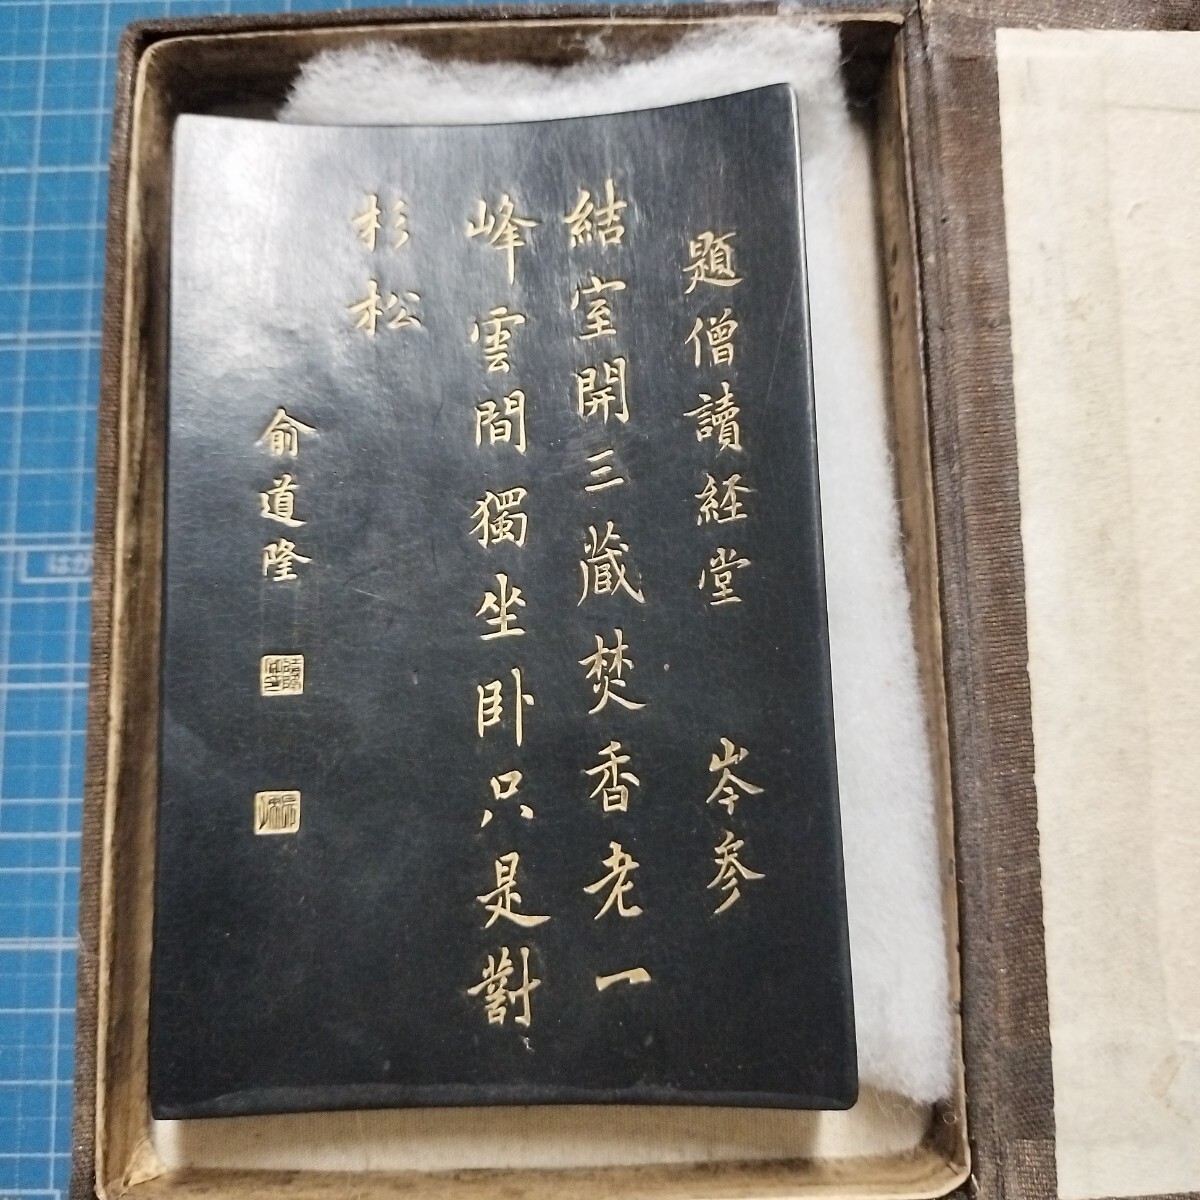 題僧讀経堂 岑參
結室開三藏焚香老一
峰雲間獨坐臥只是對
杉松
俞道隆